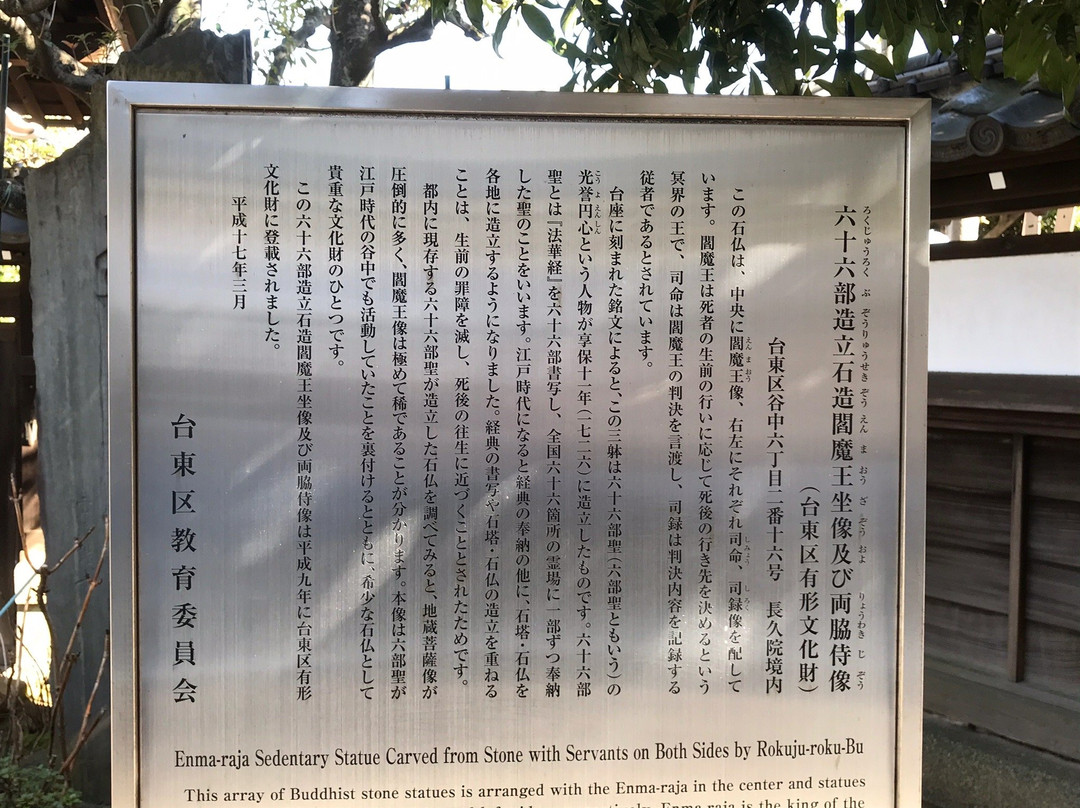 六十六部造立石造閻魔王坐像及び両脇侍像
ろくじゅうろく ぶ ぞうりゅうせき ぞう えん ま おう ざ ぞう およ りょうわき じ ぞう
（台東区有形文化財）
台東区谷中六丁目二番十六号 長久院境内
この石仏は、中央に閻魔王像、右左にそれぞれ司命、司録像を配して
えん ま おう しみょう しろく
います。閻魔王は死者の生前の行いに応じて死後の行き先を決めるという
冥界の王で、司命は閻魔王の判決を言渡し、司録は判決内容を記録する
従者であるとされています。
台座に刻まれた銘文によると、この三躰は六十六部聖（六部聖ともいう）の
光誉円心という人物が享保十一年（一七二六）に造立したものです。六十六部
こう よ えんしん
聖とは『法華経』を六十六部書写し、全国六十六箇所の霊場に一部ずつ奉納
した聖のことをいいます。江戸時代になると経典の奉納の他に、石塔・石仏を
各地に造立するようになりました。経典の書写や石塔・石仏の造立を重ねる
ことは、生前の罪障を滅し、死後の往生に近づくこととされたためです。
都内に現存する六十六部聖が造立した石仏を調べてみると、地蔵菩薩像が
圧倒的に多く、閻魔王像は極めて稀であることが分かります。本像は六部聖が
江戸時代の谷中でも活動していたことを裏付けるとともに、希少な石仏として
貴重な文化財のひとつです。
この六十六部造立石造閻魔王坐像及び両脇侍像は平成九年に台東区有形
文化財に登載されました。
平成十七年三月
台東区教育委員会
Enma-raja Sedentary Statue Carved from Stone with Servants on Both Sides by Rokuju-roku-Bu
This array of Buddhist stone statues is arranged with the Enma-raja in the center and statues
Enma-raja is the king of the